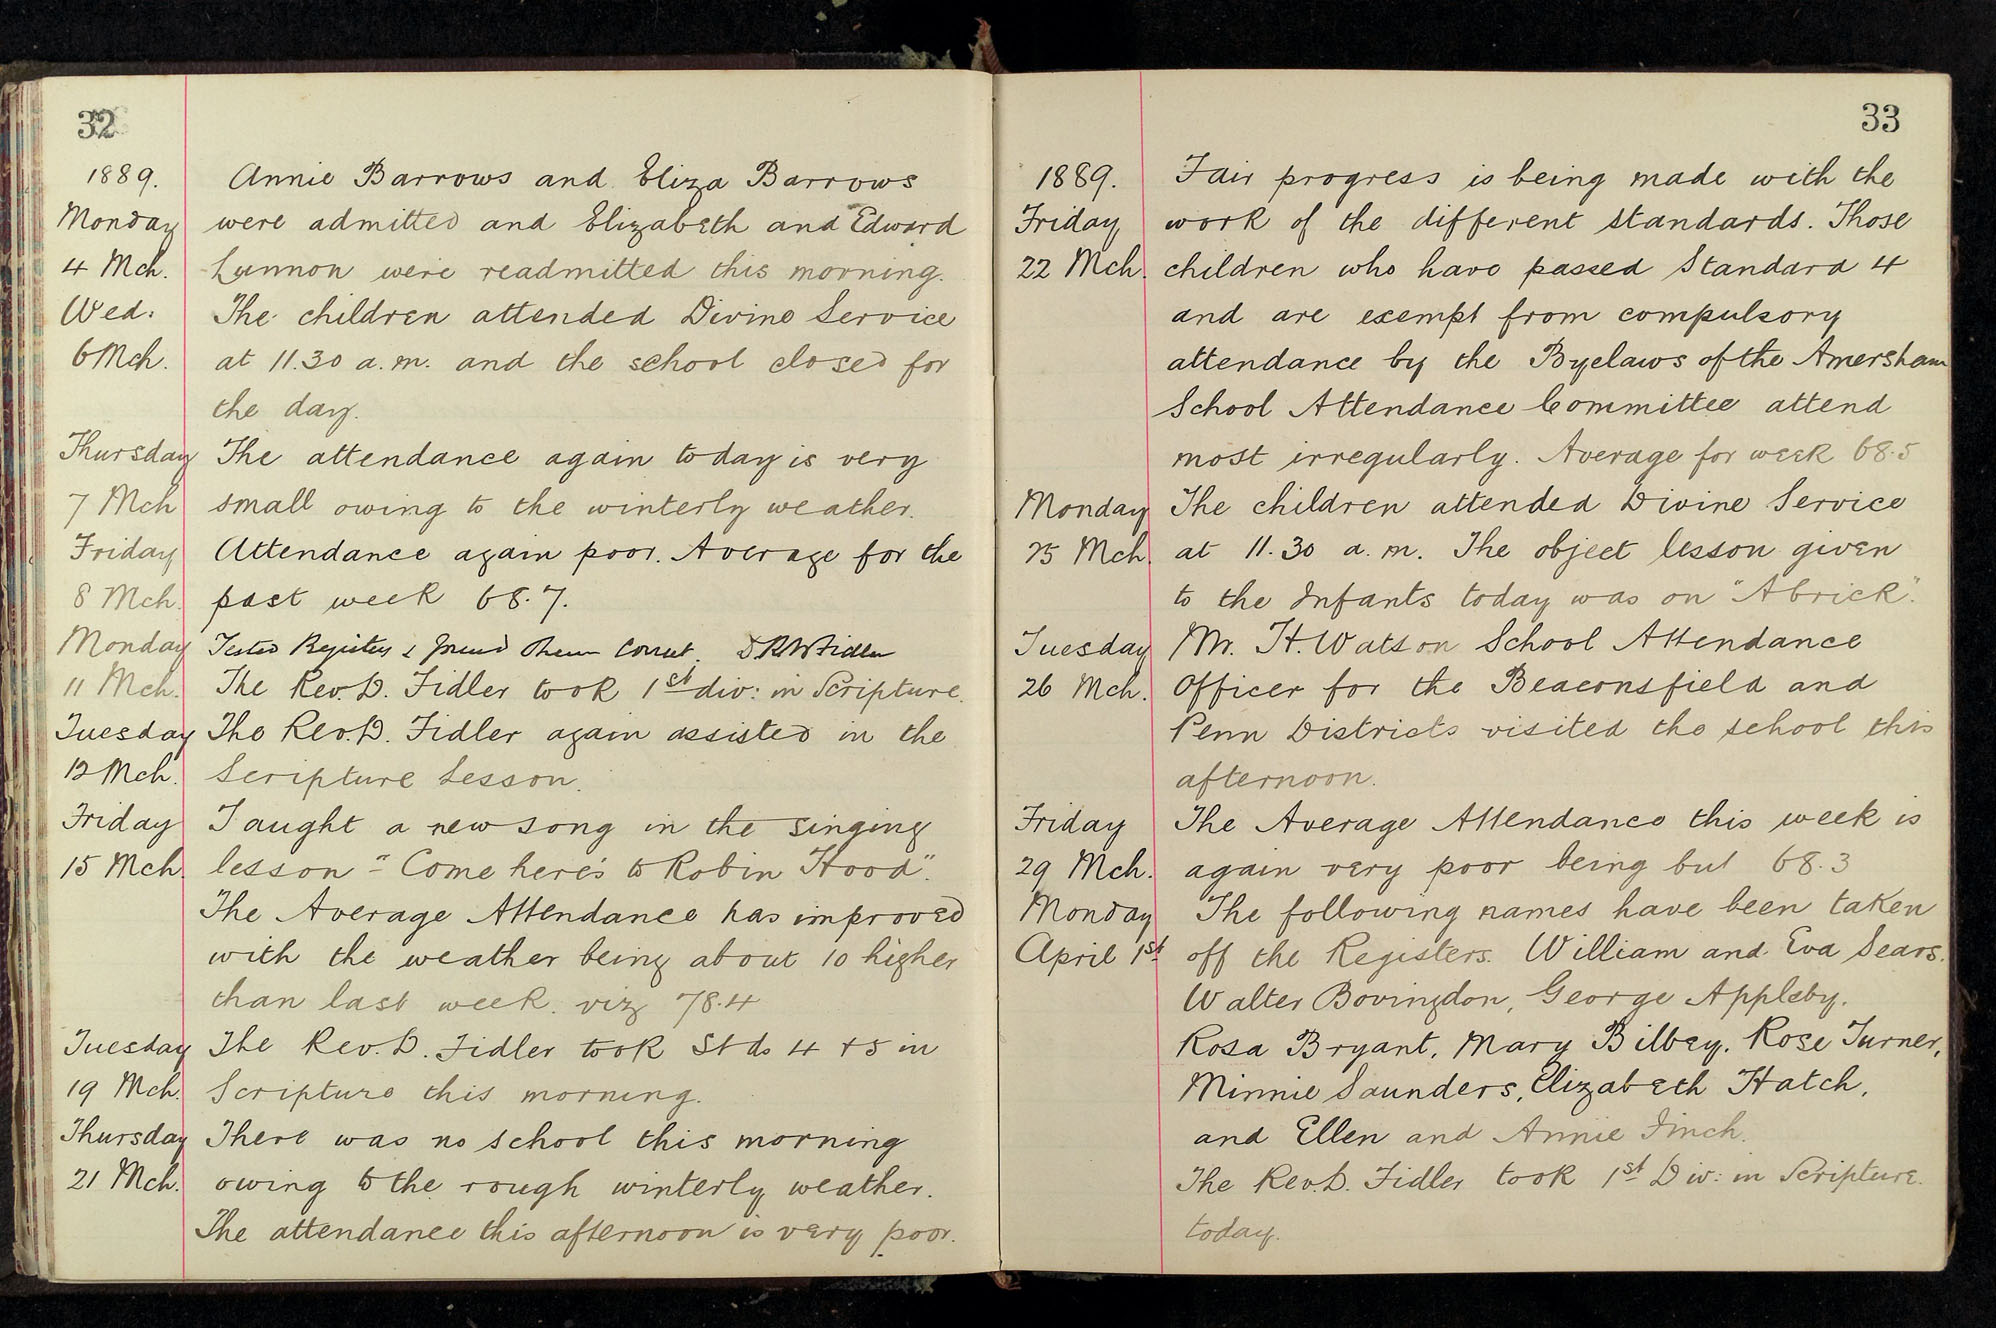 32
1889. Annie Barrows and Eliza Barrows
Monday were admitted and Elizabeth and Edward
4 Mch. Lunnon were readmitted this morning.
Wed: The children attended Divine Service
6 Mch. at 11.30 a.m. and the school closed for
the day.
Thursday The attendance again today is very
7 Mch small owing to the winterly weather.
Friday Attendance again poor. Average for the
8 Mch. past week 68.7.
Monday Tested Registers & found them Correct. D R W Fidler
11 Mch. The Rev. D. Fidler took 1st div: in Scripture.
Tuesday The Rev. D. Fidler again assisted in the
12 Mch. Scripture Lesson.
Friday Taught a new song in the singing
15 Mch. lesson - "Come here's to Robin Hood".
The Average Attendance has improved
with the weather being about 10 higher
than last week. viz 78.4
Tuesday The Rev. D. Fidler took Stds 4 + 5 in
19 Mch. Scripture this morning.
Thursday There was no school this morning
21 Mch. owing to the rough winterly weather.
The attendance this afternoon is very poor.
33
1889. Fair progress is being made with the
Friday work of the different standards. Those
22 Mch. children who have passed Standard 4
and are exempt from compulsory
attendance by the Byelaws of the Amersham
School Attendance Committee attend
most irregularly. Average for week 68.5
Monday The children attended Divine Service
25 Mch. at 11.30 a.m. The object lesson given
to the Infants today was on "A brick".
Tuesday Mr. H. Watson School Attendance
26 Mch. Officer for the Beaconsfield and
Penn Districts visited the school this
afternoon.
Friday The Average Attendance this week is
29 Mch. again very poor being but 68.3
Monday The following names have been taken
April 1st off the Registers. William and Eva Sears.
Walter Bovingdon, George Appleby.
Rosa Bryant, Mary Bilbey, Rose Turner,
Minnie Saunders, Elizabeth Hatch,
and Ellen and Annie Finch.
The Rev. D. Fidler took 1st Div: in Scripture.
today.